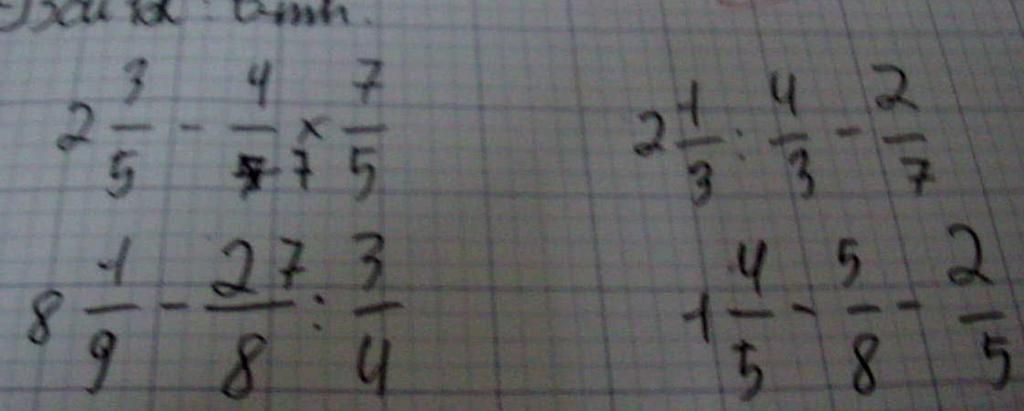 2 3/5 - 4/7 x 7/5
2 1/3 : 4/3 - 2/7
8 1/9 - 27/8 : 3/4
1 4/5 - 5/8 - 2/5